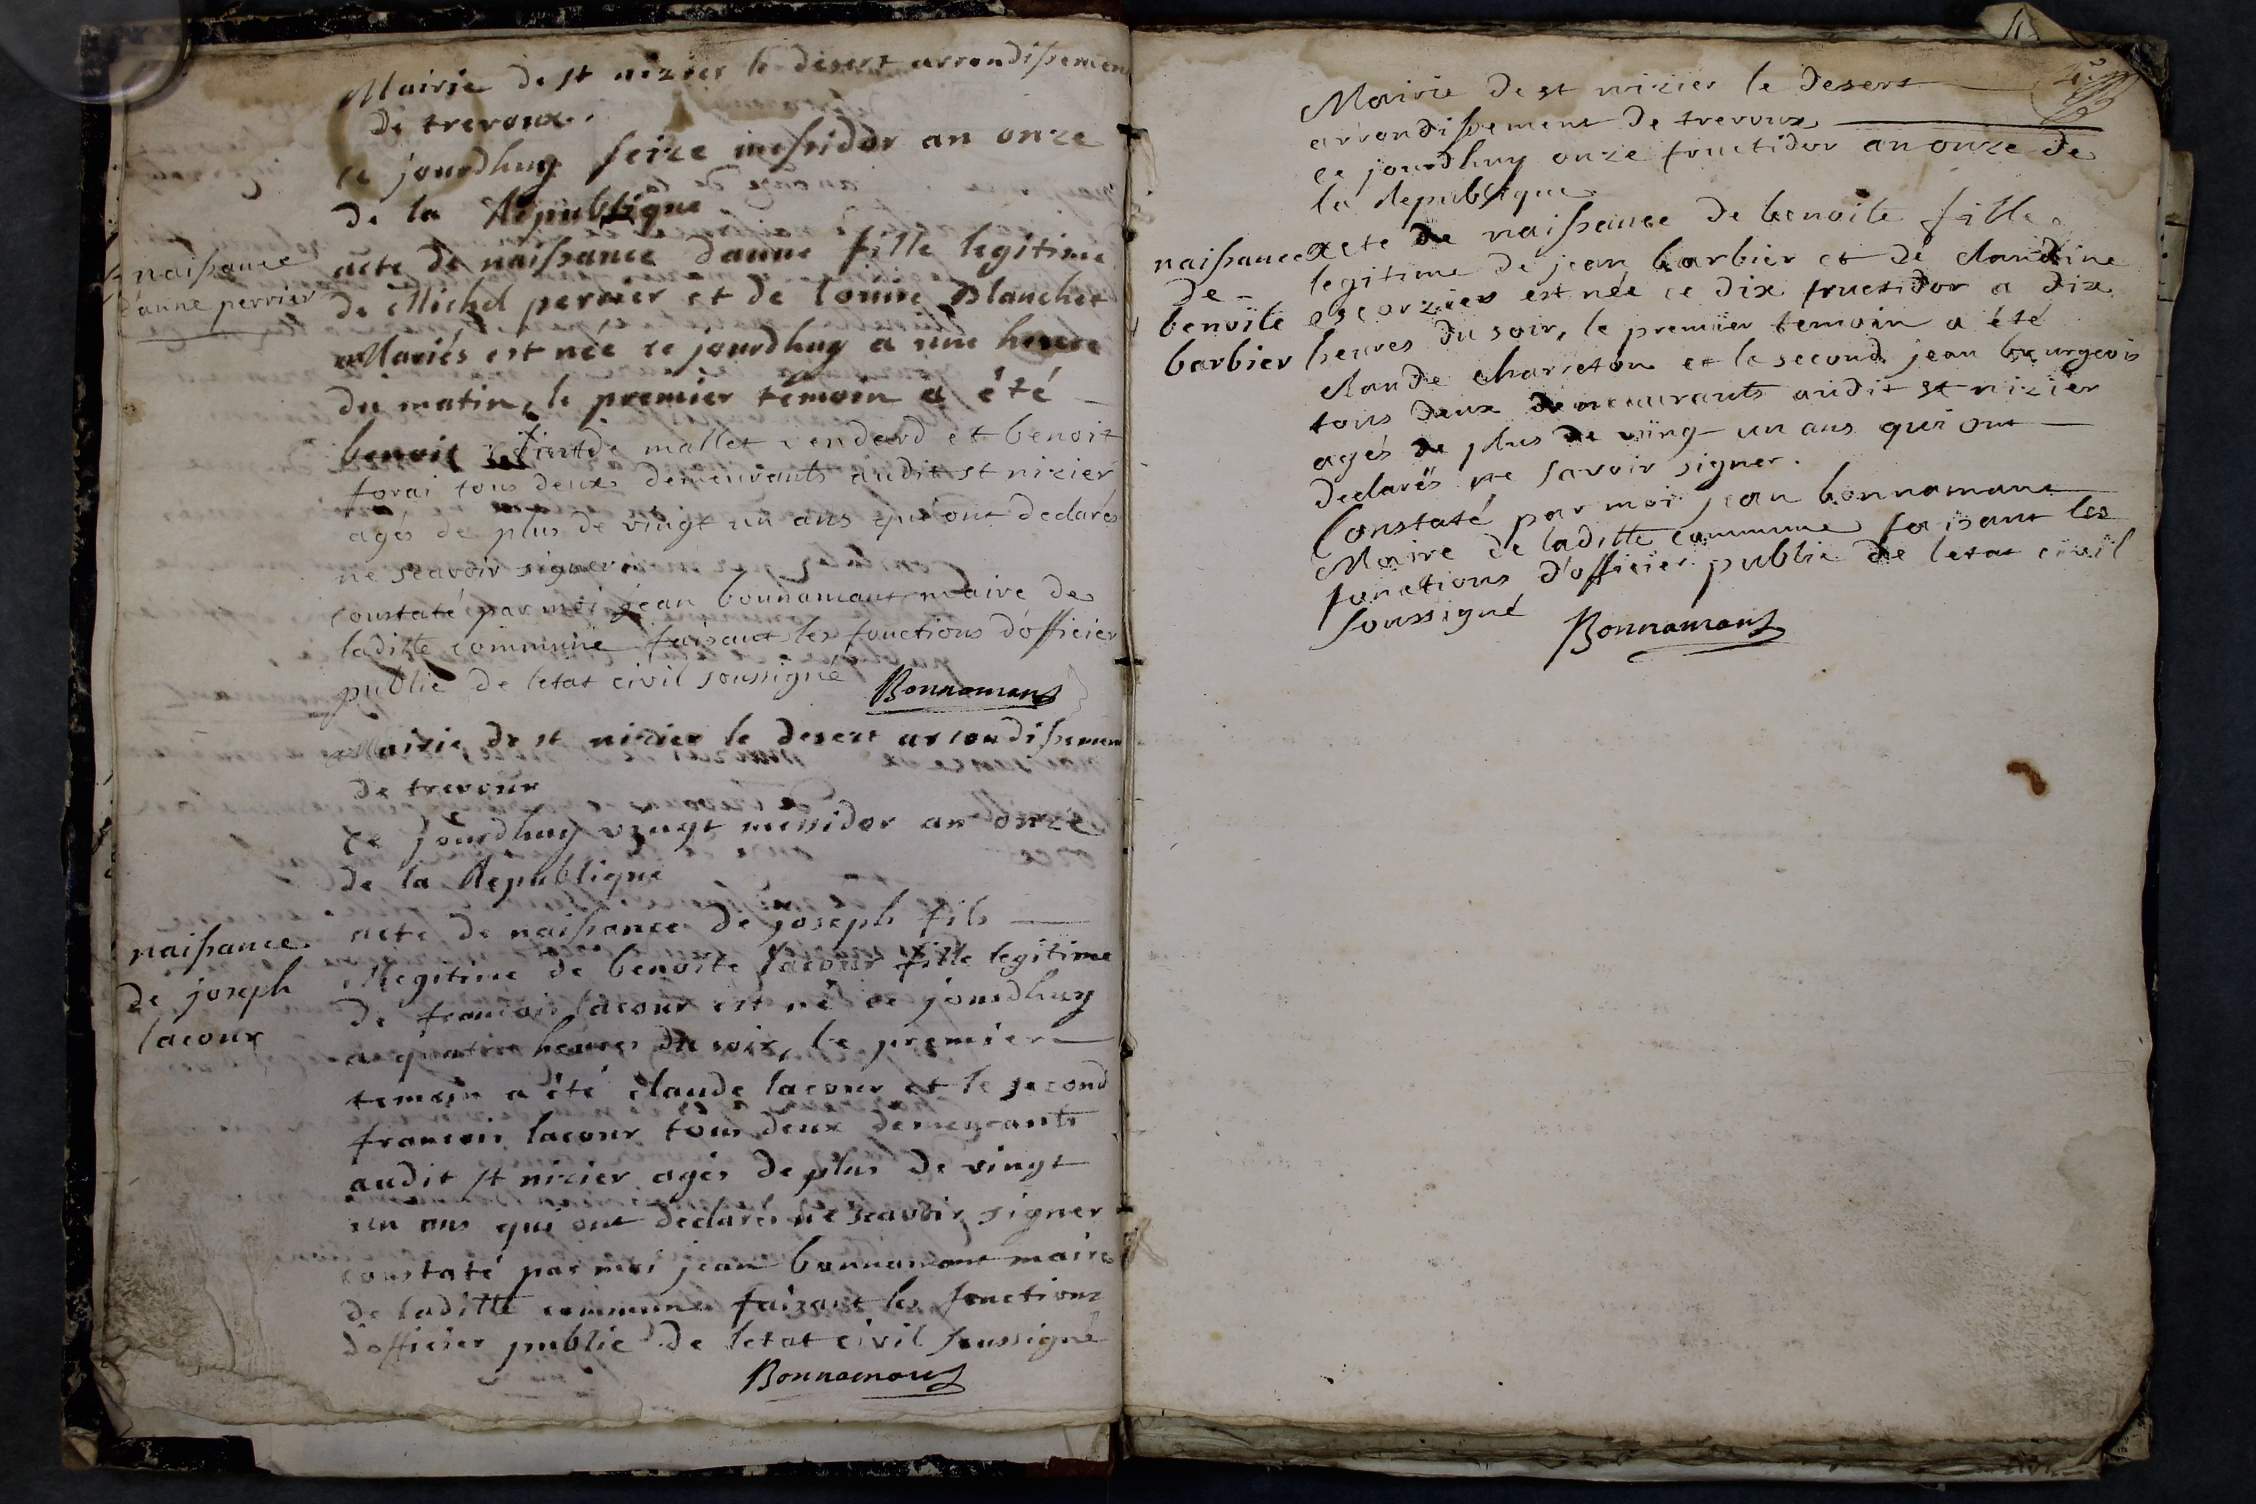 Mairie de st nizier le desert arrondissement
de trevoux.
ce jourdhuy seize messidor an onze
de la Republique
naissance
d'anne perrier
acte de naissance danne fille legitime
de Michel perrier et de louise Blanchet
Mariés est née ce jourdhuy a une heure
du matin, le premier temoin a été
benoit mallet vendard et benoit
forai tous deux demeurants audit st nizier
agés de plus de vingt un ans qui ont declarés
ne scavoir signer.
constaté par moi jean bonnamant maire de
laditte commune faisant les fonctions d'officier
public de letat civil soussigné
Bonnamant
Mairie de st nizier le desert arrondissement
de trevoux
ce jourdhuy vingt messidor an onze
de la Republique
naissance
de joseph
lacour
acte de naissance de joseph fils
illegitime de benoite lacour fille legitime
de francois lacour est né ce jourdhuy
a quatre heures du soir, le premier
temoin a été claude lacour et le second
francois lacour tous deux demeurants
audit st nizier agés de plus de vingt
un ans qui ont declarés ne scavoir signer
constaté par moi jean bonnamant maire
de laditte commune faizant les fonctions
d'officier public de letat civil soussigné
Bonnamant
Mairie de st nizier le desert
arrondissement de trevoux
ce jourdhuy onze fructidor an onze de
la Republique
naissance
de
benoite
barbier
acte de naissance de benoite fille
legitime de jean barbier et de claudine
escorzier est née ce dix fructidor a dix
heures du soir, le premier temoin a été
claude charreton et le second jean bourgeois
tous deux demeurants audit st nizier
agés de plus de ving un ans qui ont
declarés ne savoir signer.
Constaté par moi jean bonnamant
Maire de laditte commune faisant les
fonctions d'officier public de letat civil
soussigné
Bonnamant